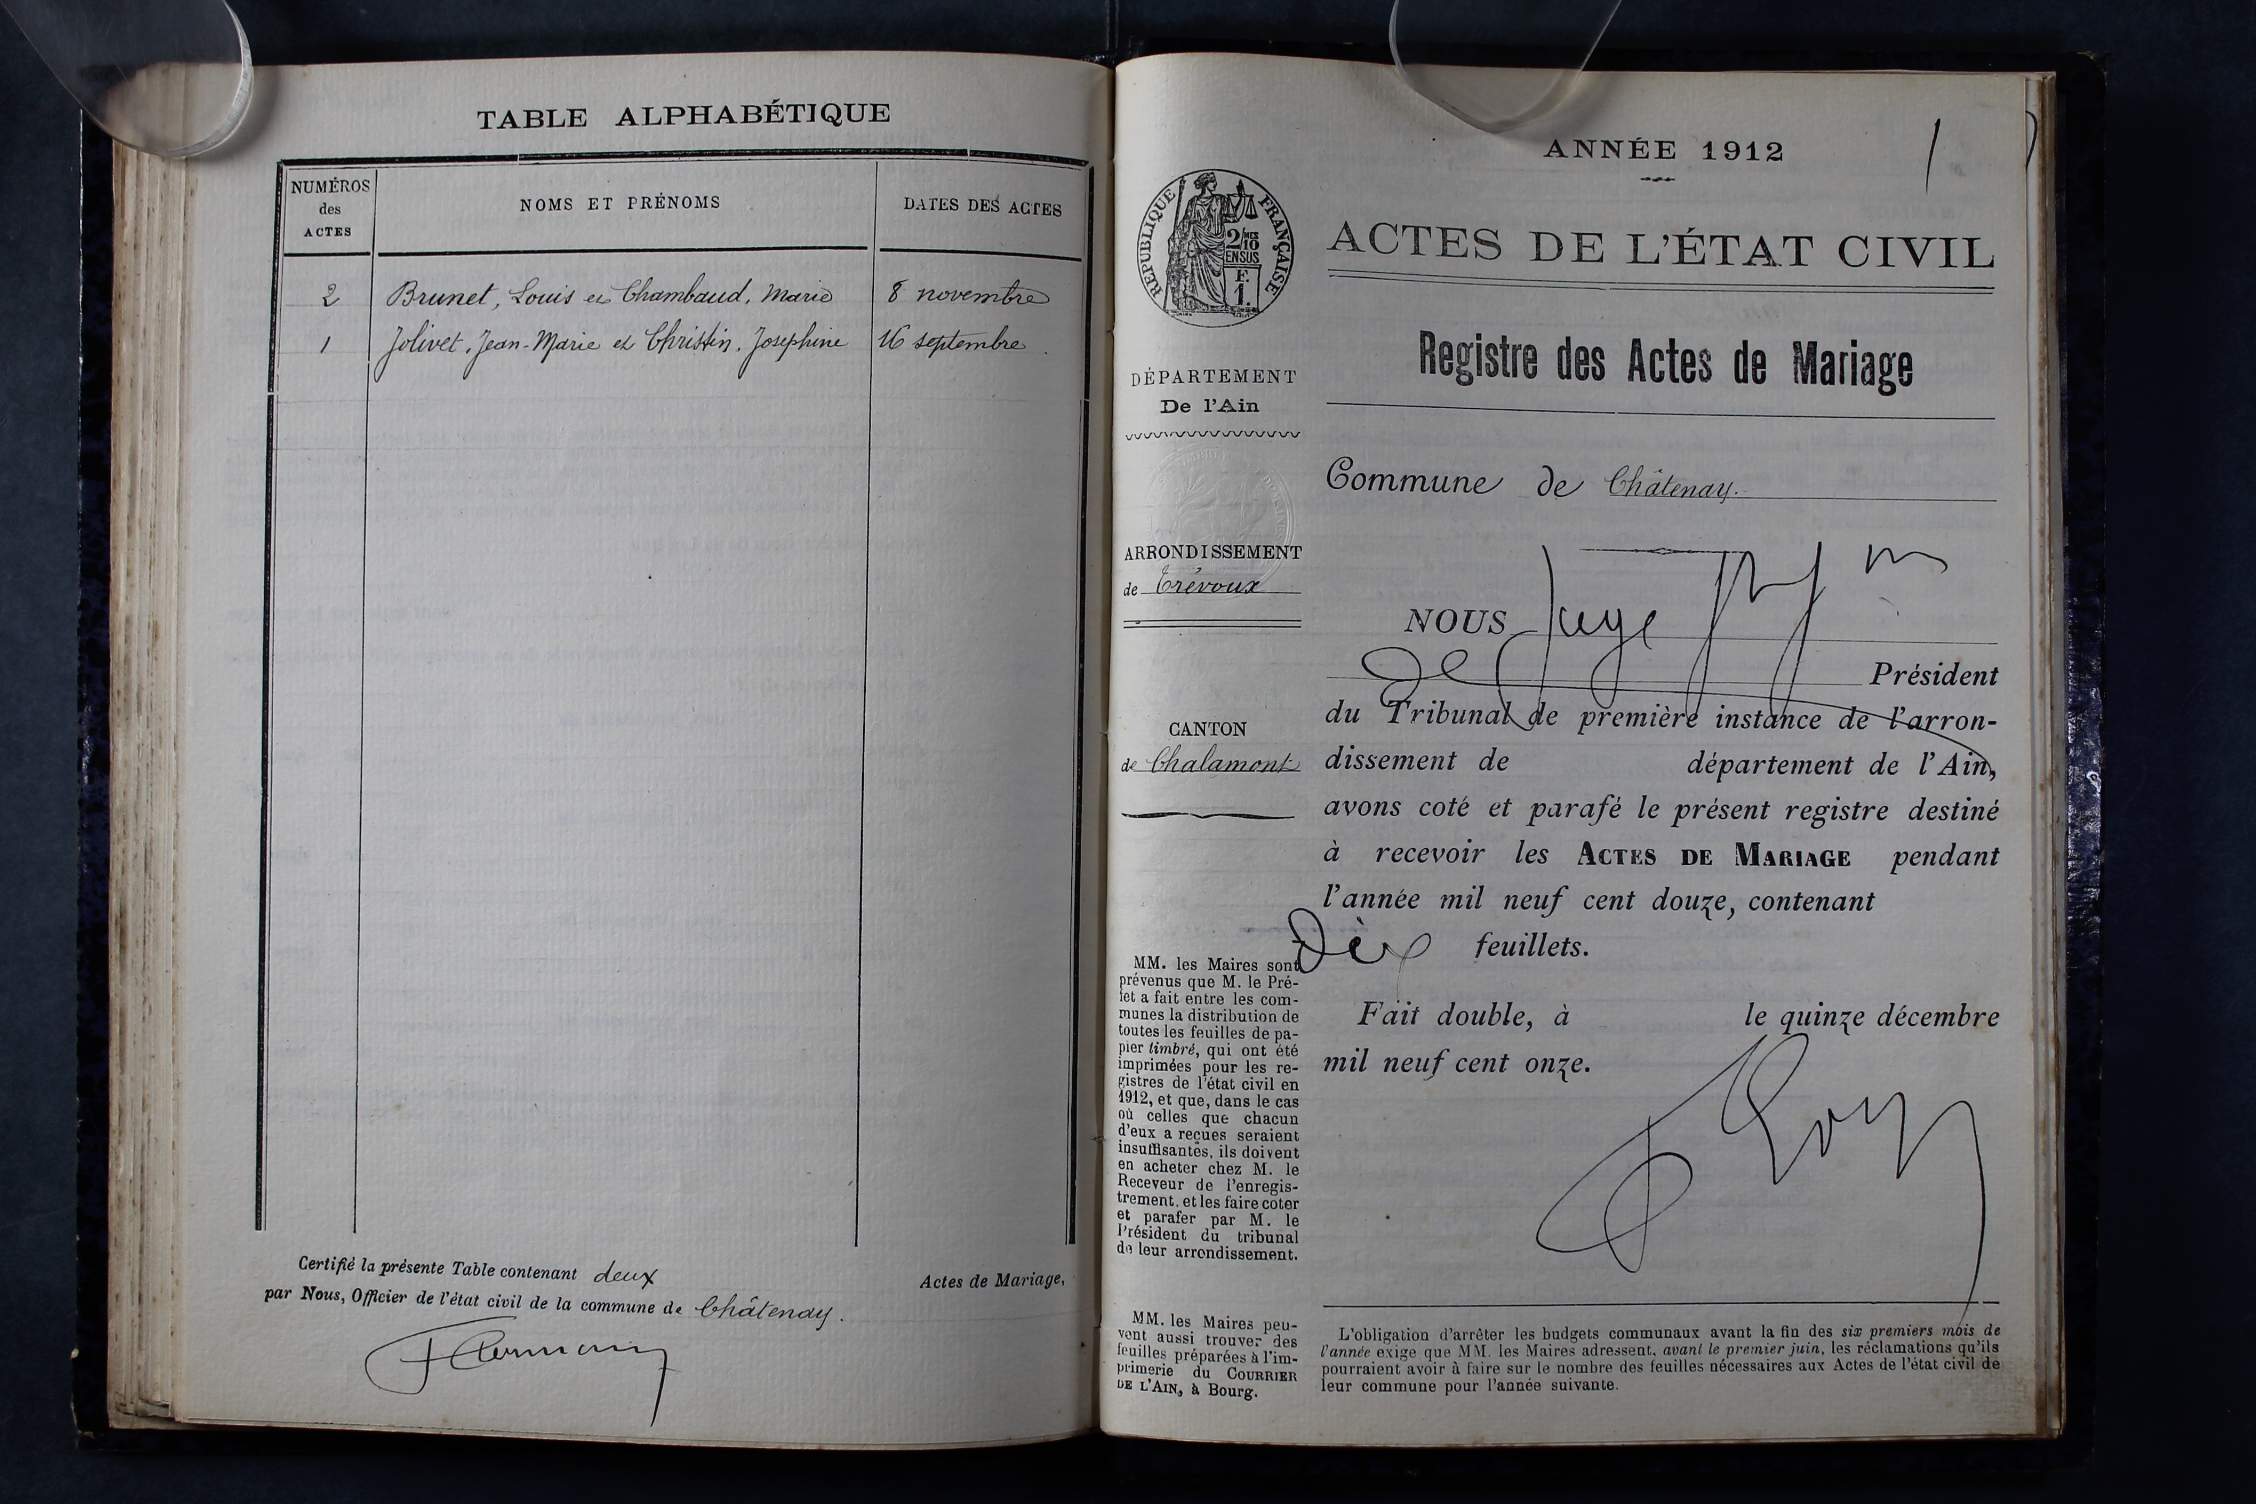 TABLE ALPHABÉTIQUE
NUMÉROS
des
ACTES
NOMS ET PRÉNOMS
DATES DES ACTES
2 Brunet, Louis et Chambaud, Marie 8 novembre
1 Jolivet, Jean-Marie et Christin, Josephine 16 septembre
Certifié la présente Table contenant deux Actes de Mariage,
par Nous, Officier de l'état civil de la commune de Châtenay.
1
ANNÉE 1912
RÉPUBLIQUE FRANÇAISE
2/MES
10
EN SUS
F.
1.
ACTES DE L'ÉTAT CIVIL
Registre des Actes de Mariage
DÉPARTEMENT
De l'Ain
ARRONDISSEMENT
de Trévoux
CANTON
de Chalamont
MM. les Maires sont
prévenus que M. le Pré-
fet a fait entre les com-
munes la distribution de
toutes les feuilles de pa-
pier timbré, qui ont été
imprimées pour les re-
gistres de l'état civil en
1912, et que, dans le cas
où celles que chacun
d'eux a reçues seraient
insuffisantes, ils doivent
en acheter chez M. le
Receveur de l'enregis-
trement, et les faire coter
et parafer par M. le
Président du tribunal
de leur arrondissement.
MM. les Maires peu-
vent aussi trouver des
feuilles préparées à l'im-
primerie du COURRIER
DE L'AIN, à Bourg.
Commune de Châtenay.
NOUS Juge
Président
du Tribunal de première instance de l'arron-
dissement de département de l'Ain,
avons coté et parafé le présent registre destiné
à recevoir les ACTES DE MARIAGE pendant
l'année mil neuf cent douze, contenant
Dix feuillets.
Fait double, à le quinze décembre
mil neuf cent onze.
L'obligation d'arrêter les budgets communaux avant la fin des six premiers mois de
l'année exige que MM. les Maires adressent, avant le premier juin, les réclamations qu'ils
pourraient avoir à faire sur le nombre des feuilles nécessaires aux Actes de l'état civil de
leur commune pour l'année suivante.